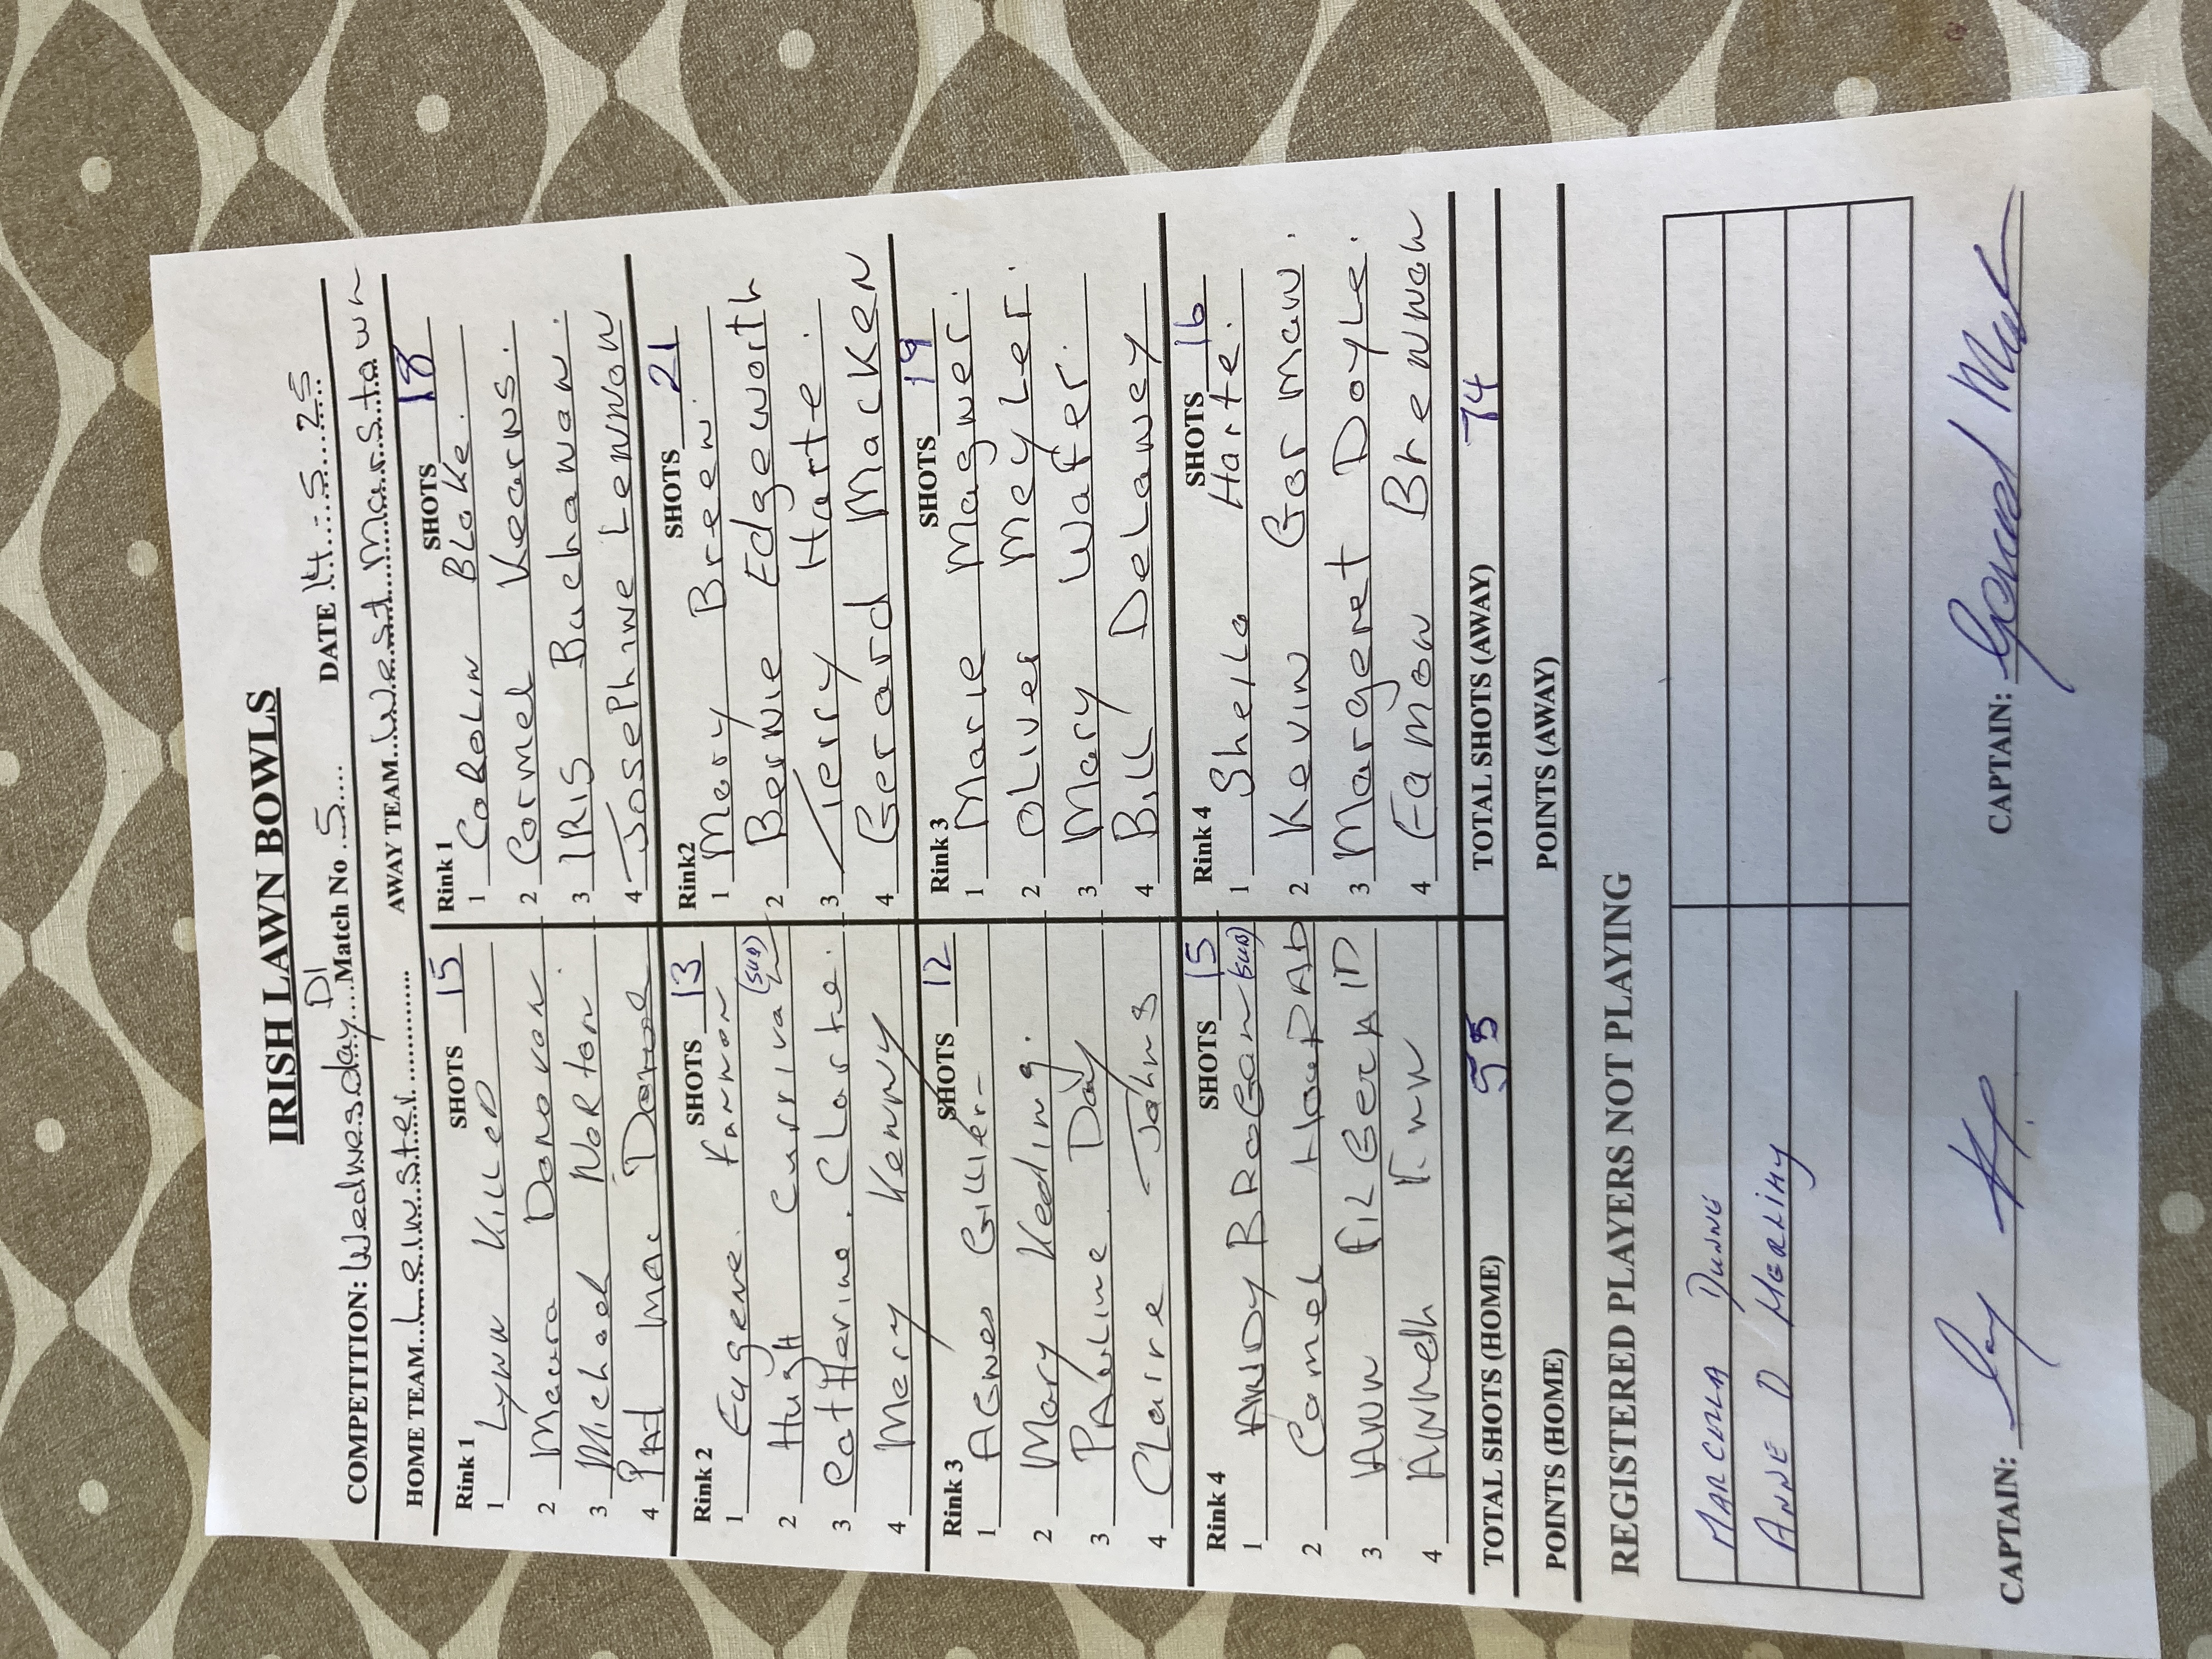 IRISH LAWN BOWLS
COMPETITION: Wednesday D1 Match No 5 DATE 14.5.25
HOME TEAM Leinster AWAY TEAM West Marstown
Rink 1 SHOTS 15 Rink 1 SHOTS 18
1 Lynn Killeo 1 Carolin Blake.
2 Maura Donovan 2 Cormel Kearns.
3 Michael Norton 3 IRIS Buchanan.
4 Pat Mac Donal 4 Josephine Lennon
Rink 2 SHOTS 13 Rink2 SHOTS 21
1 Eugene Fannon 1 Mary Breen.
2 Hugh Curriva (SUB) 2 Bernie Edgeworth
3 Catherine Clarke. 3 Terry Harte.
4 Mery Kenny 4 Gerard Macken
Rink 3 SHOTS 12 Rink 3 SHOTS 19
1 Agnes 1 Marie Magner.
2 Mary Keeling. 2 Oliver Meyler.
3 Pauline Day 3 Mary Wafer.
4 Claire Johns 4 Bill Delaney
Rink 4 SHOTS 15 Rink 4 SHOTS 16
1 ANDY BROGAN (SUB) 1 Sheila Harte.
2 Carmel Howard 2 Kevin Gorman.
3 Ann 3 Margeret Doyle.
4 4 Eamon Brennan
TOTAL SHOTS (HOME) 55 TOTAL SHOTS (AWAY) 74
POINTS (HOME) POINTS (AWAY)
REGISTERED PLAYERS NOT PLAYING
MARCELLA DUNNE
ANNE D
CAPTAIN: CAPTAIN: Gerard